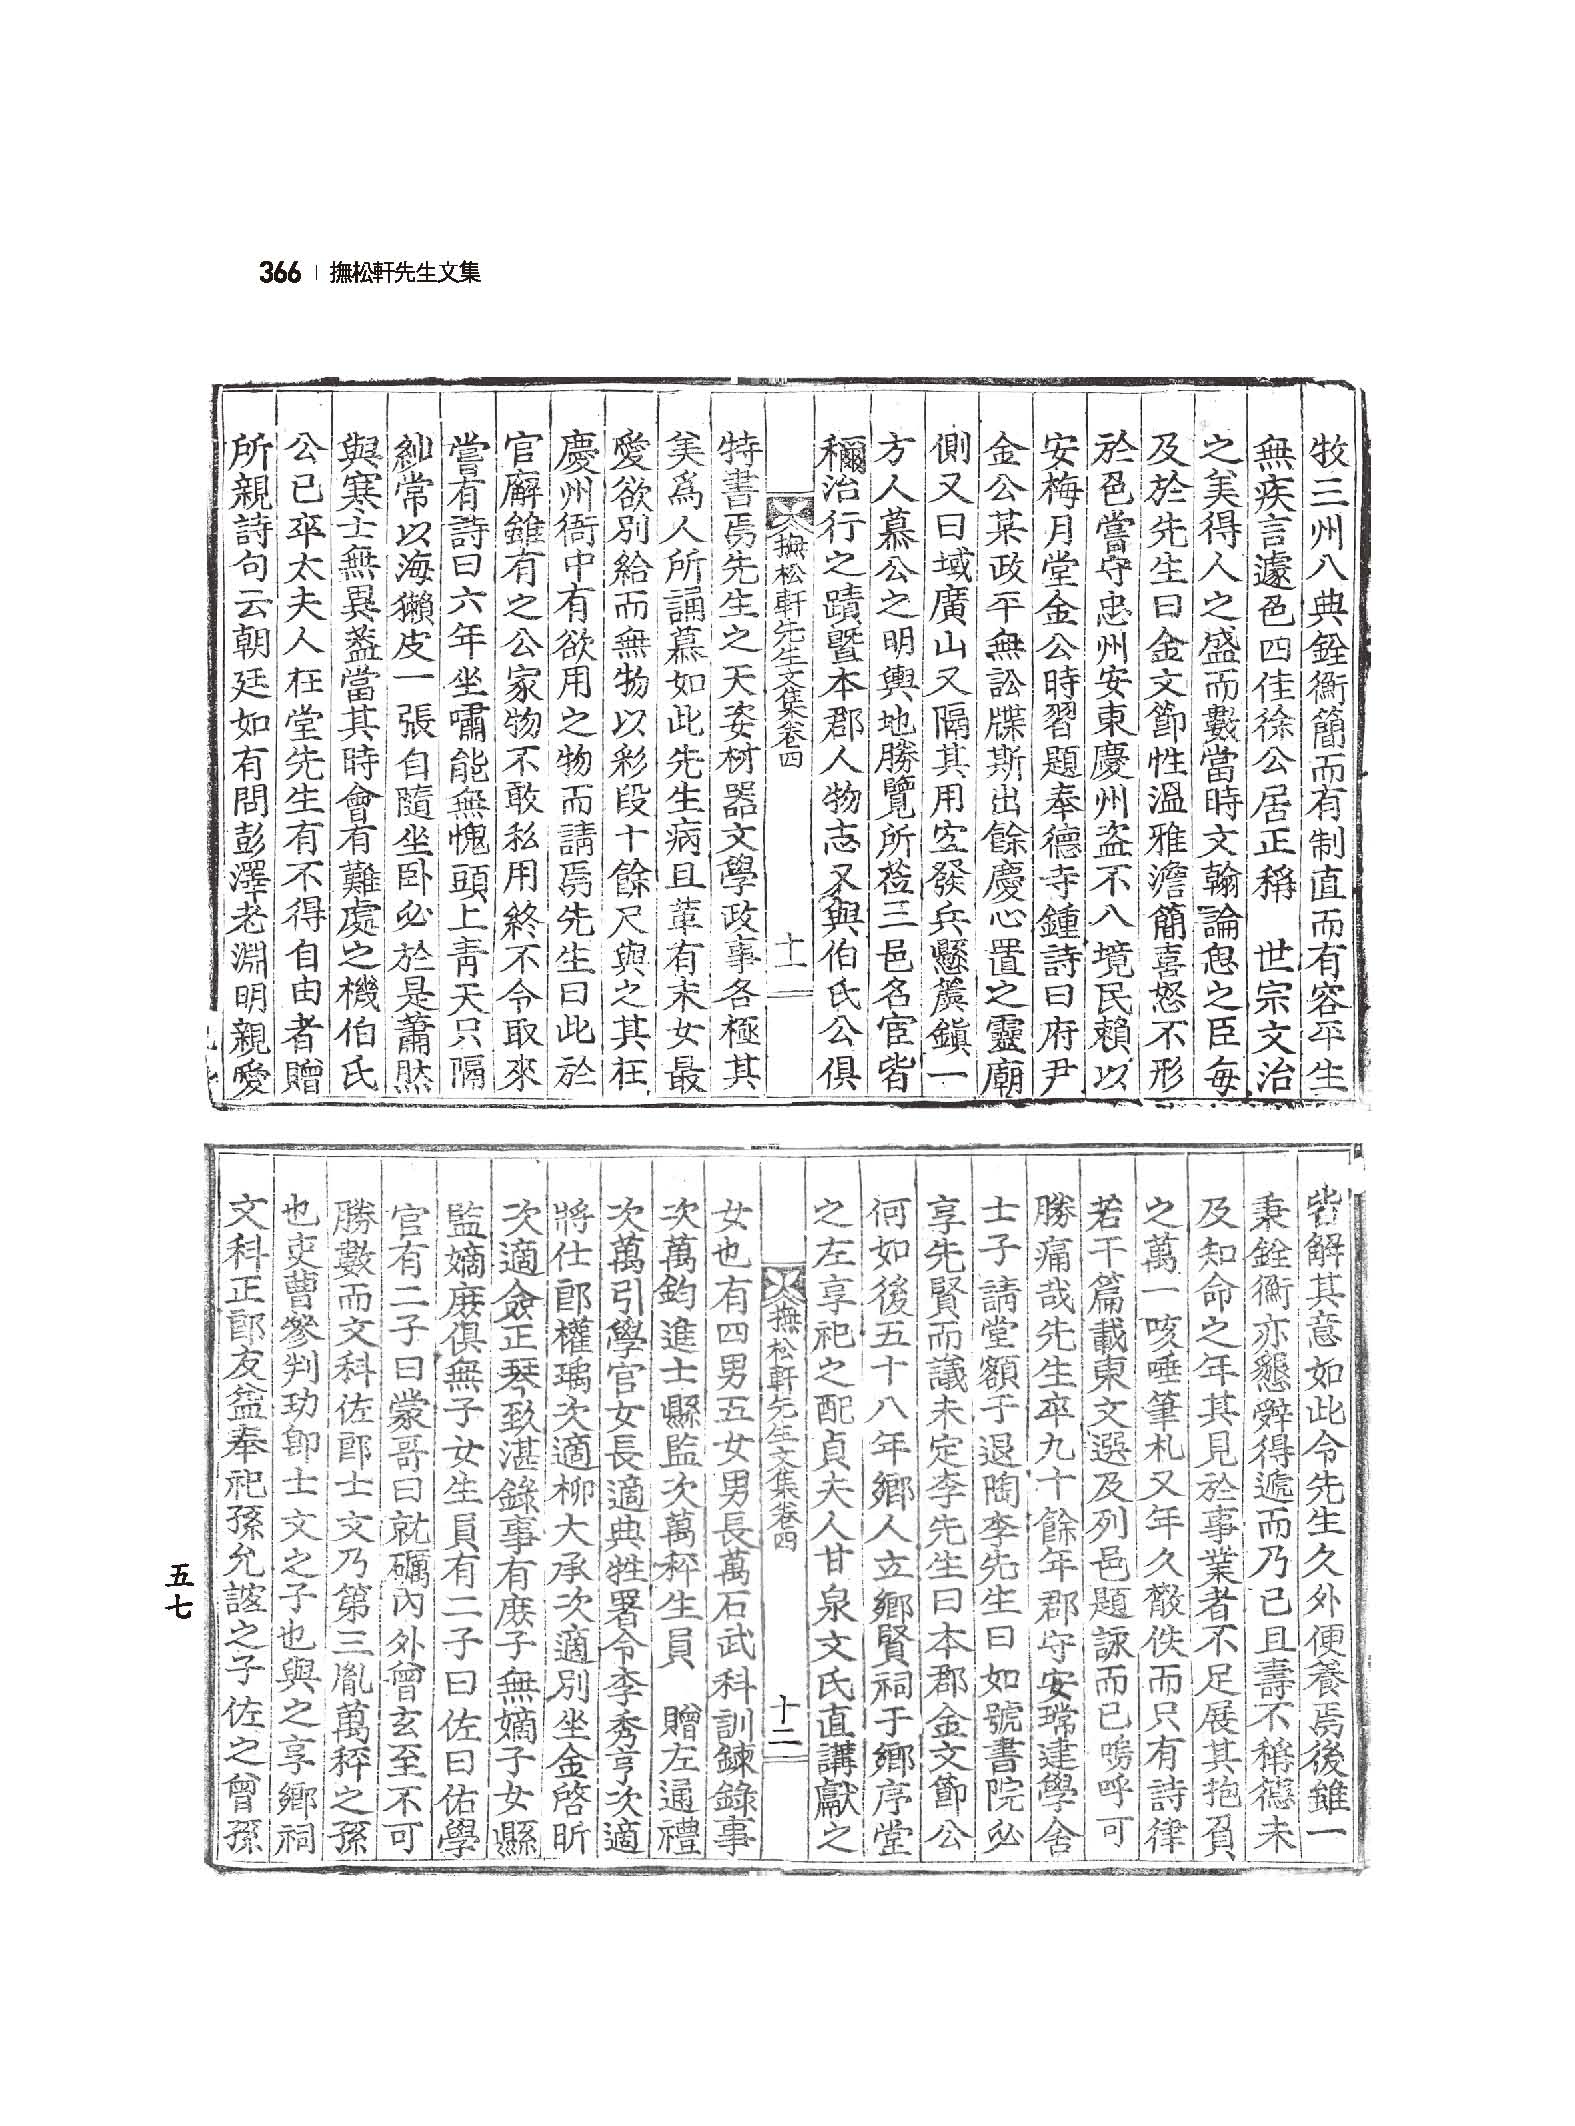 366 | 撫松軒先生文集
牧三州八典銓衡簡而有制直而有容平生
無疾言遽色四佳徐公居正稱　世宗文治
之美得人之盛而數當時文翰論思之臣每
及於先生曰金文節性溫雅澹簡喜怒不形
於色嘗守忠州安東慶州盜不入境民賴以
安梅月堂金公時習題奉德寺鍾詩曰府尹
金公某政平無訟牒斯出餘慶心置之靈廟
側又曰域廣山又隔其用宜發兵懸簴鎭一
方人慕公之明輿地勝覽所莅三邑名宦皆
稱治行之蹟曁本郡人物志又與伯氏公俱
特書焉先生之天姿材器文學政事各極其
美爲人所誦慕如此先生病且革有末女最
愛欲別給而無物以彩段十餘尺與之其在
慶州衙中有欲用之物而請焉先生曰此於
官廨雖有之公家物不敢私用終不令取來
嘗有詩曰六年坐嘯能無愧頭上靑天只隔
紗常以海獺皮一張自隨坐臥必於是蕭然
與寒士無異蓋當其時會有難處之機伯氏
公已卒太夫人在堂先生有不得自由者贈
所親詩句云朝廷如有問彭澤老淵明親愛
撫松軒先生文集卷四
十一
皆解其意如此令先生久外便養焉後雖一
秉銓衡亦懇辭得遞而乃已且壽不稱德未
及知命之年其見於事業者不足展其抱負
之萬一咳唾筆札又年久散佚而只有詩律
若干篇載東文選及列邑題詠而已嗚呼可
勝痛哉先生卒九十餘年郡守安瑺建學舍
士子請堂額于退陶李先生曰如號書院必
享先賢而議未定李先生曰本郡金文節公
何如後五十八年鄉人立鄉賢祠于鄉序堂
之左享祀之配貞夫人甘泉文氏直講獻之
女也有四男五女男長萬石武科訓鍊錄事
次萬鈞進士縣監次萬秤生員　贈左通禮
次萬引學官女長適典牲署令李秀亨次適
將仕郎權瑀次適柳大承次適別坐金啓昕
次適僉正琴致湛錄事有庶子無嫡子女縣
監嫡庶俱無子女生員有二子曰佐曰佑學
官有二子曰蒙哥曰就礪內外曾玄至不可
勝數而文科佐郎士文乃第三胤萬秤之孫
也吏曹參判功卽士文之子也與之享鄉祠
文科正郎友益奉祀孫允諡之子佐之曾孫
撫松軒先生文集卷四
十二
五七